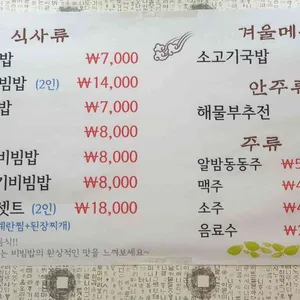 식사류
밥 ₩7,000
빔밥 (2인) ₩14,000
밥 ₩7,000
₩8,000
비빔밥 ₩8,000
기비빔밥 ₩8,000
셋트 (2인) ₩18,000
계란찜+된장찌개)
음식!!
는 비빔밥의 환상적인 맛을 느껴보세요~
겨울메
소고기국밥
안주류
해물부추전
주류
알밤동동주 ₩5
맥주 ₩
소주 ₩
음료수 ₩